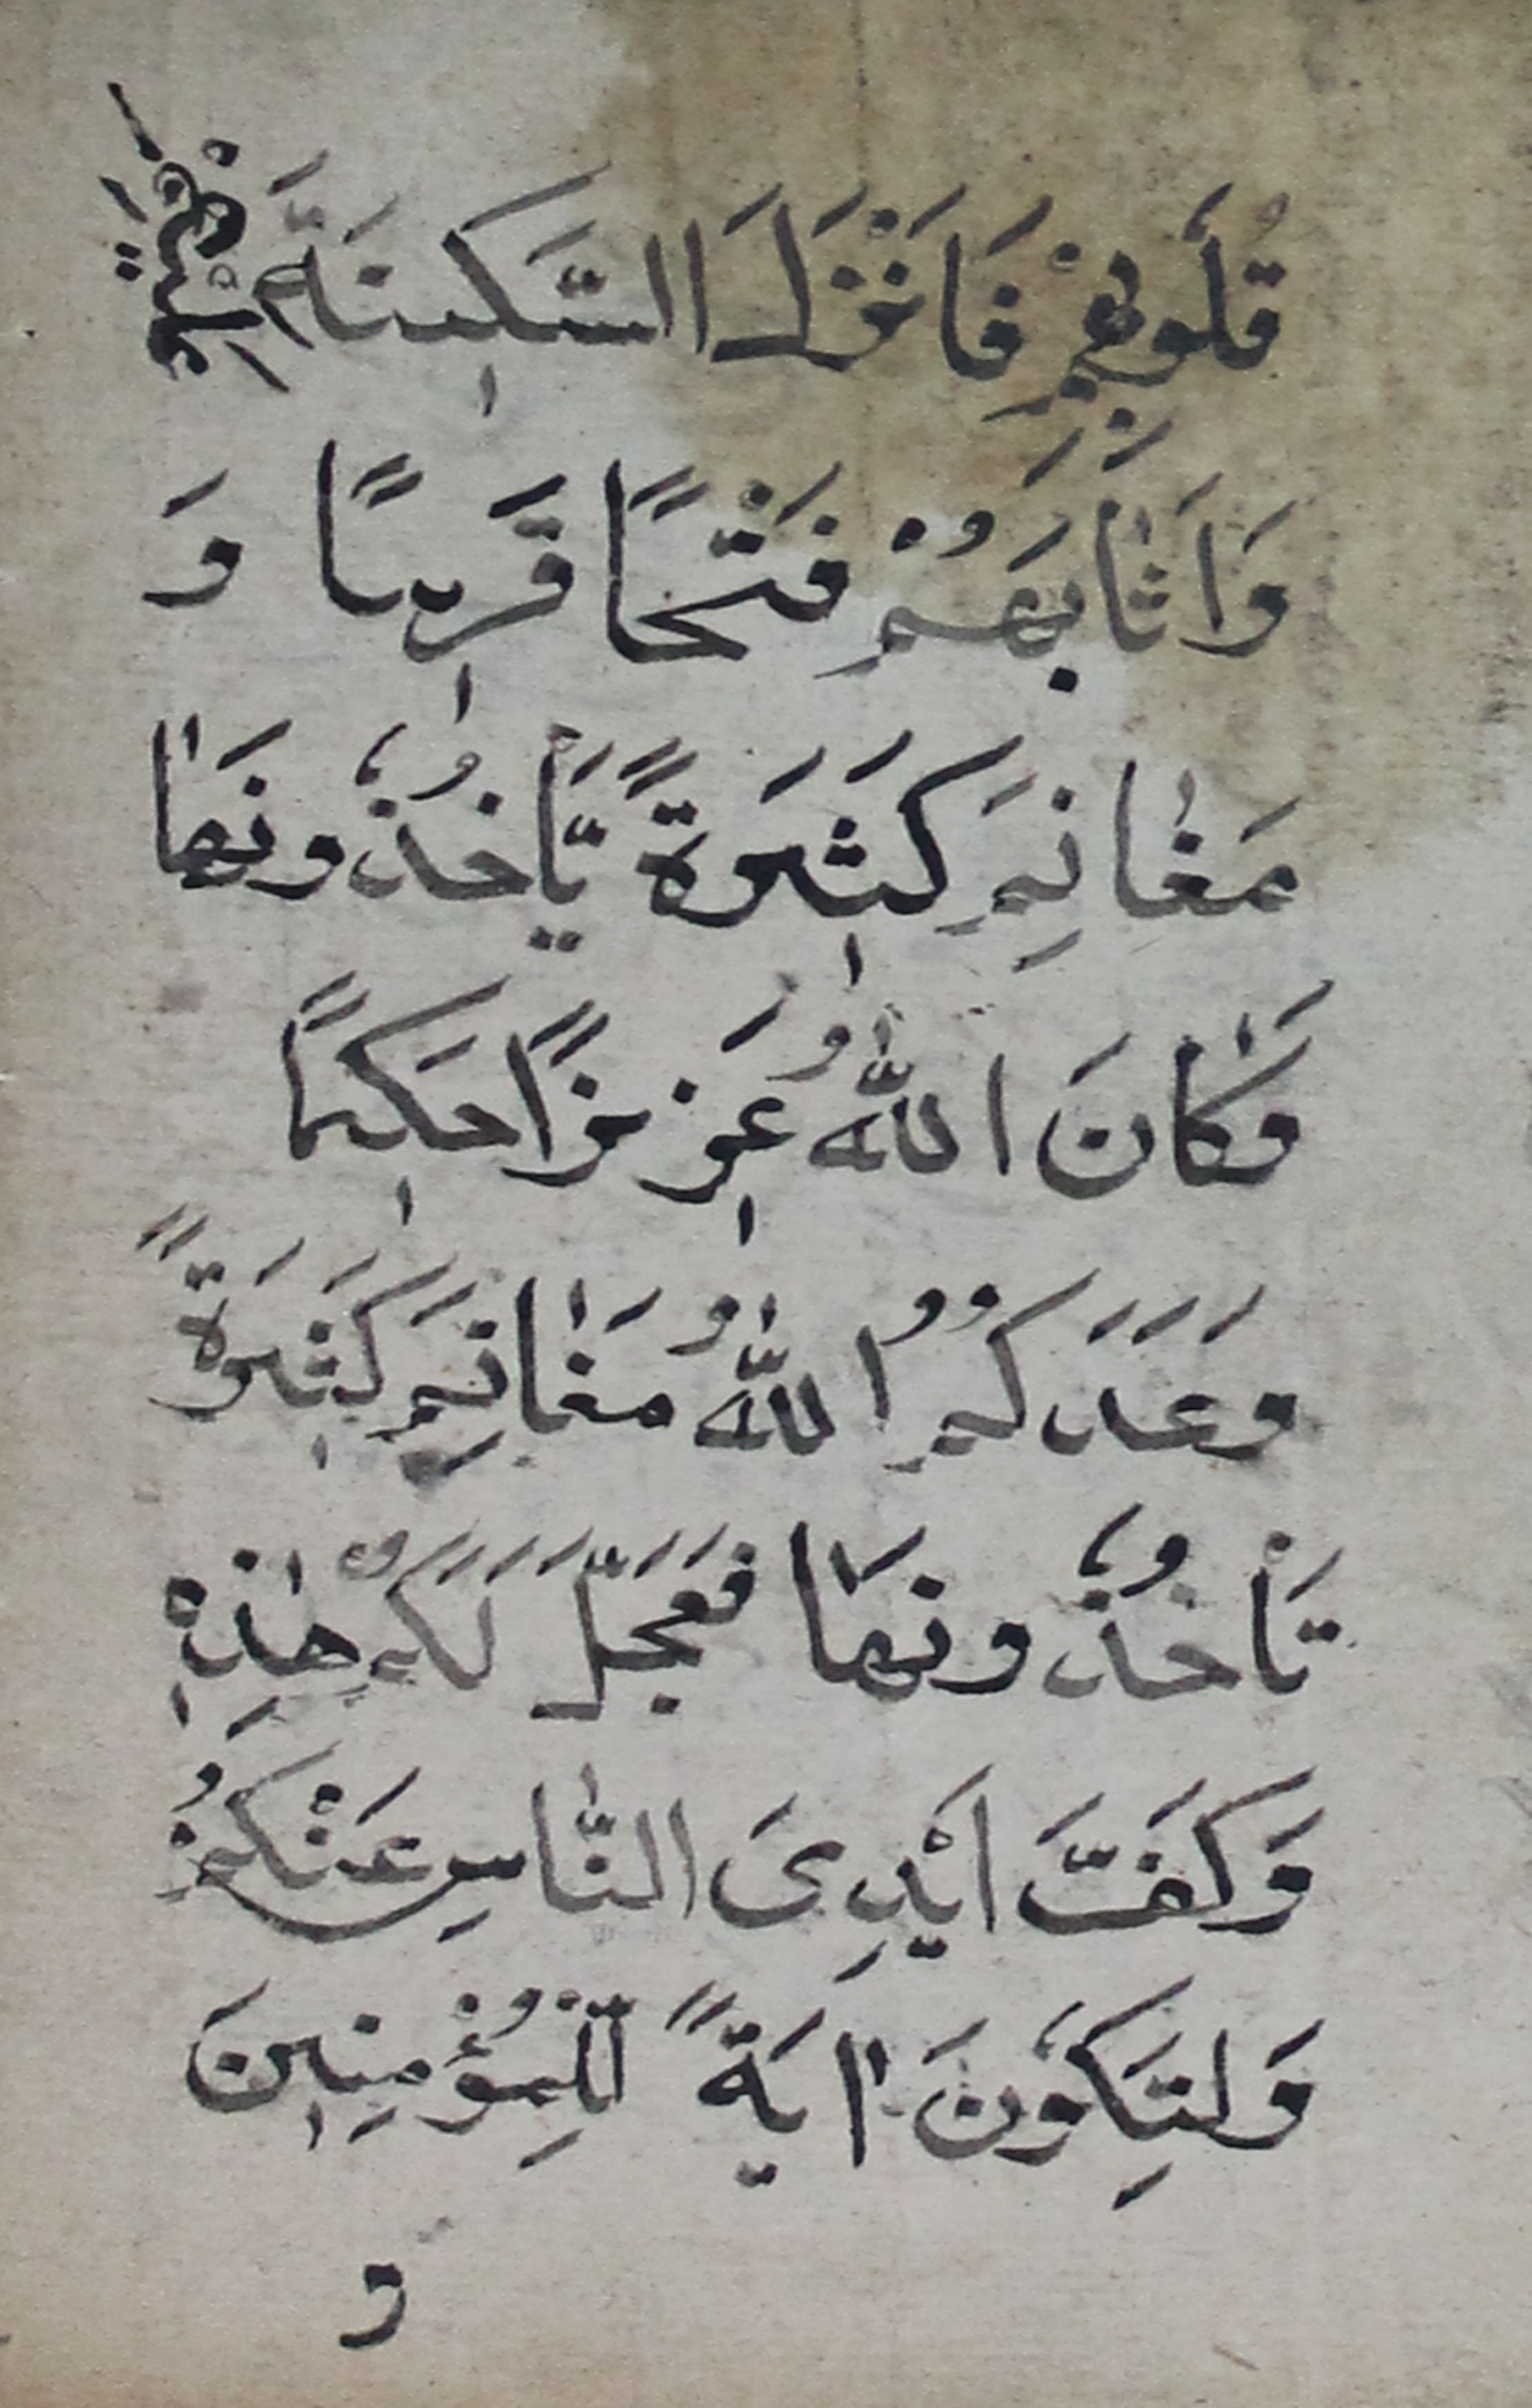 قُلُوبِهِمْ فَاَنْزَلَ السَّكٖينَةَ عَلَيْهِمْ
وَاَثَابَهُمْ فَتْحًا قَرٖيبًا وَ
مَغَانِمَ كَثٖيرَةً يَّأْخُذُونَهَا
وَكَانَ اللّٰهُ عَزٖيزًا حَكٖيمًا
وَعَدَكُمُ اللّٰهُ مَغَانِمَ كَثٖيرَةً
تَأْخُذُونَهَا فَعَجَّلَ لَكُمْ هٰذِهٖ
وَكَفَّ اَيْدِىَ النَّاسِ عَنْكُمْ
وَلِتَكُونَ اٰيَةً لِّلْمُؤْمِنٖينَ
و